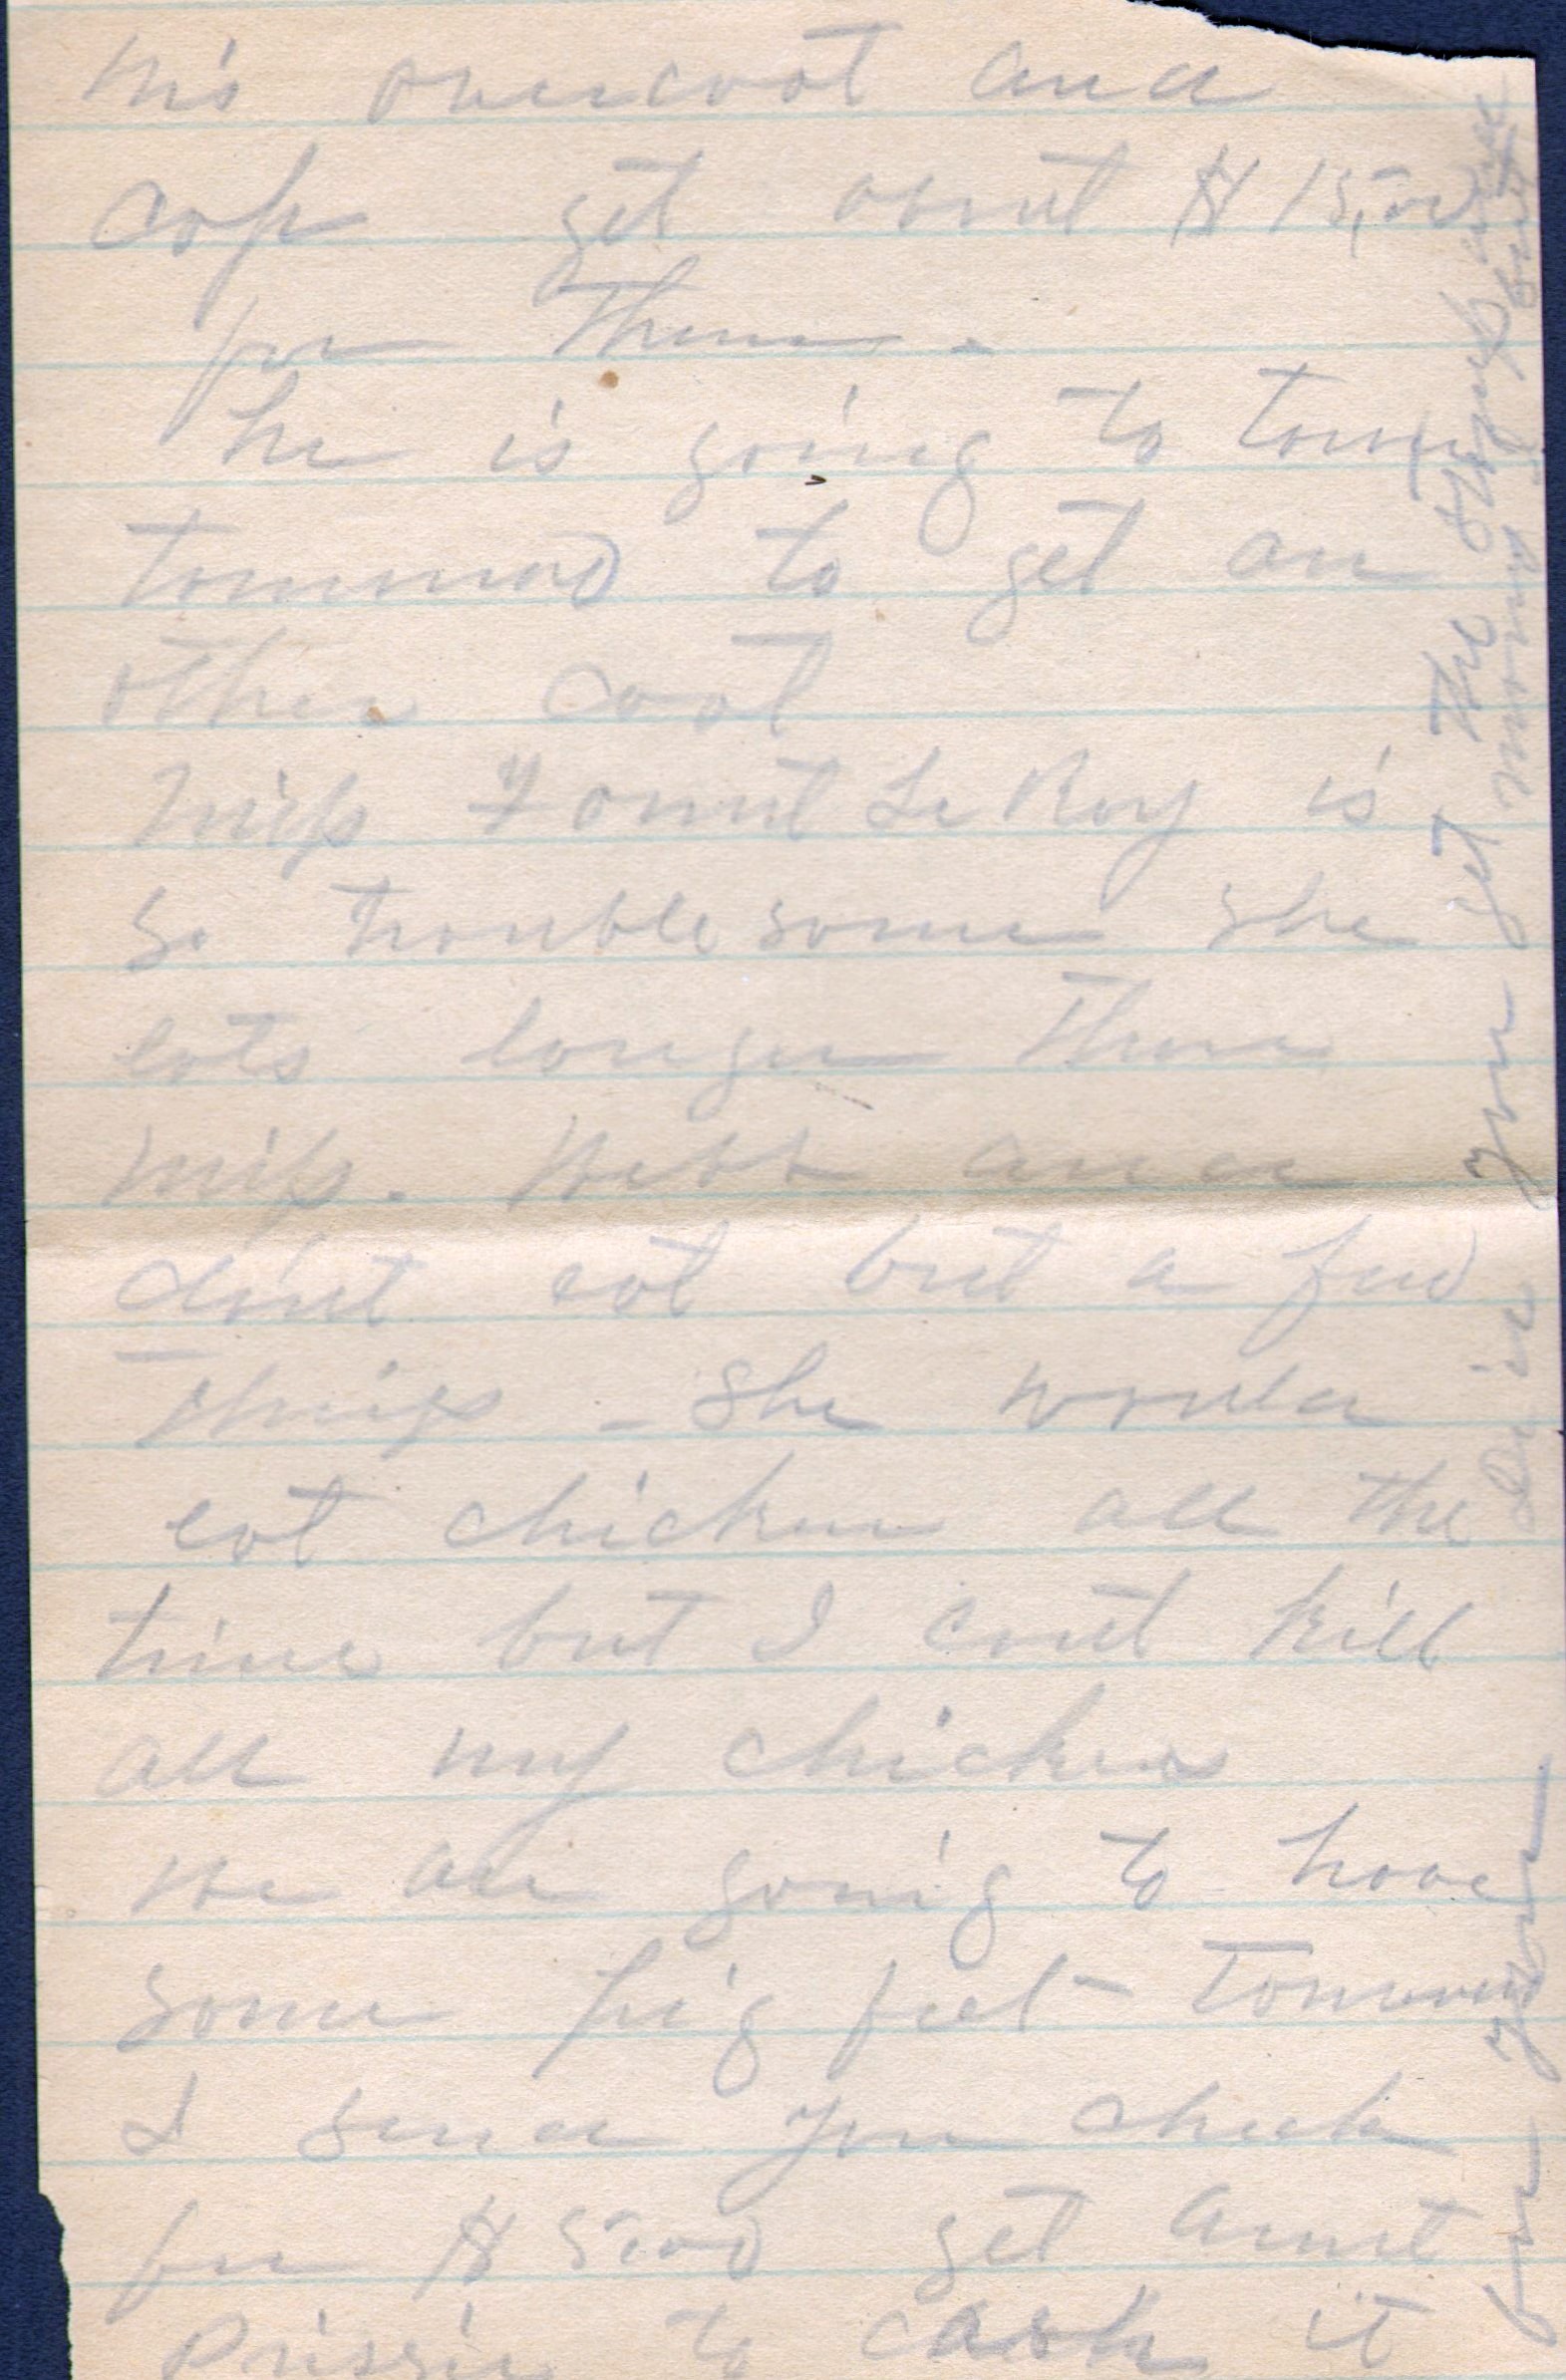 his overcoat and
cap get about $15,00
for them.
he is going to town
tommrow to get an
other coat
Miss Fount LeRoy is
so trouble some she
eats longer then
Miss. Webb and
dont eat but a few
Things - She would
eat chicken all the
time but I cant kill
all my chickens
we are going to have
some pig feet tommrow
I send you check
for $5.00 get Aunt
Prissie to cash it
for your
you get the things
money but